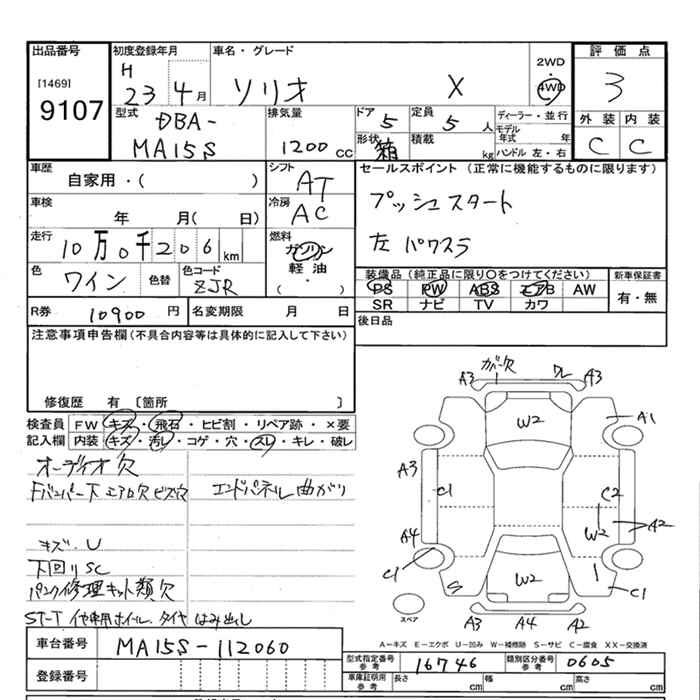 出品番号 初度登録年月 車名・グレード 2WD・4WD 評価点
[1469] 9107 H 23 4月 ソリオ X 3
型式 DBA-MA15S 排気量 1200cc ドア 5 定員 5人 ディーラー・並行 外装 内装
形状 箱 積載 kg モデル年式 年 ハンドル 左・右 C C
車歴 自家用・( ) シフト AT セールスポイント (正常に機能するものに限ります)
車検 年 月( 日) 冷房 AC プッシュスタート
走行 10万0千206km 燃料 ガソリン 軽油・( ) 左パワスラ
色 ワイン 色替 色コード ZJR 装備品(純正品に限り○をつけてください) 新車保証書
PS PW ABS エアB AW 有・無
SR ナビ TV カワ
R券 10900円 名変期限 月 日 後日品
注意事項申告欄(不具合内容等は具体的に記入して下さい)
修復歴 有 〔箇所 〕
検査員 FW キズ・飛石・ヒビ割・リペア跡・×要
記入欄 内装 キズ・汚レ・コゲ・穴・スレ・キレ・破レ
オーディオ欠
Fバンパー下エアロ欠ビス穴 エンドパネル曲がり
キズ・U
下回りSC
パンク修理キット類欠
タイヤ はみ出し
A3 ガバー欠 ワレ A3
W2 A1
A3 C1 C2
A4 W2 A2
C1 S W2 1 C1
スペア A3 A4 A2
A－キズ E－エクボ U－凹み W－補修跡 S－サビ C－腐食 XX－交換済
車台番号 MA15S-112060
型式指定番号 参考 16746 類別区分番号 参考 0605
登録番号 車庫証明用 参考 長さ cm 幅 cm 高さ cm